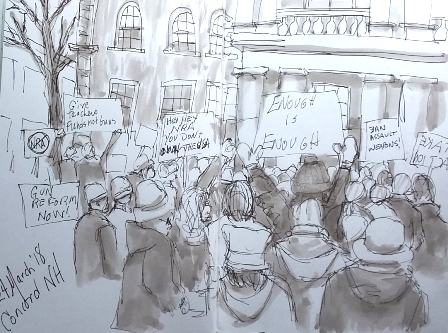 Give
Teachers
Funds not Guns
NRA
GUN
REFORM
NOW!
HEY HEY
NRA
YOU DON'T
OWN THE USA
ENOUGH
IS
ENOUGH
BAN
ASSAULT
WEAPONS!
March '18
Concord NH